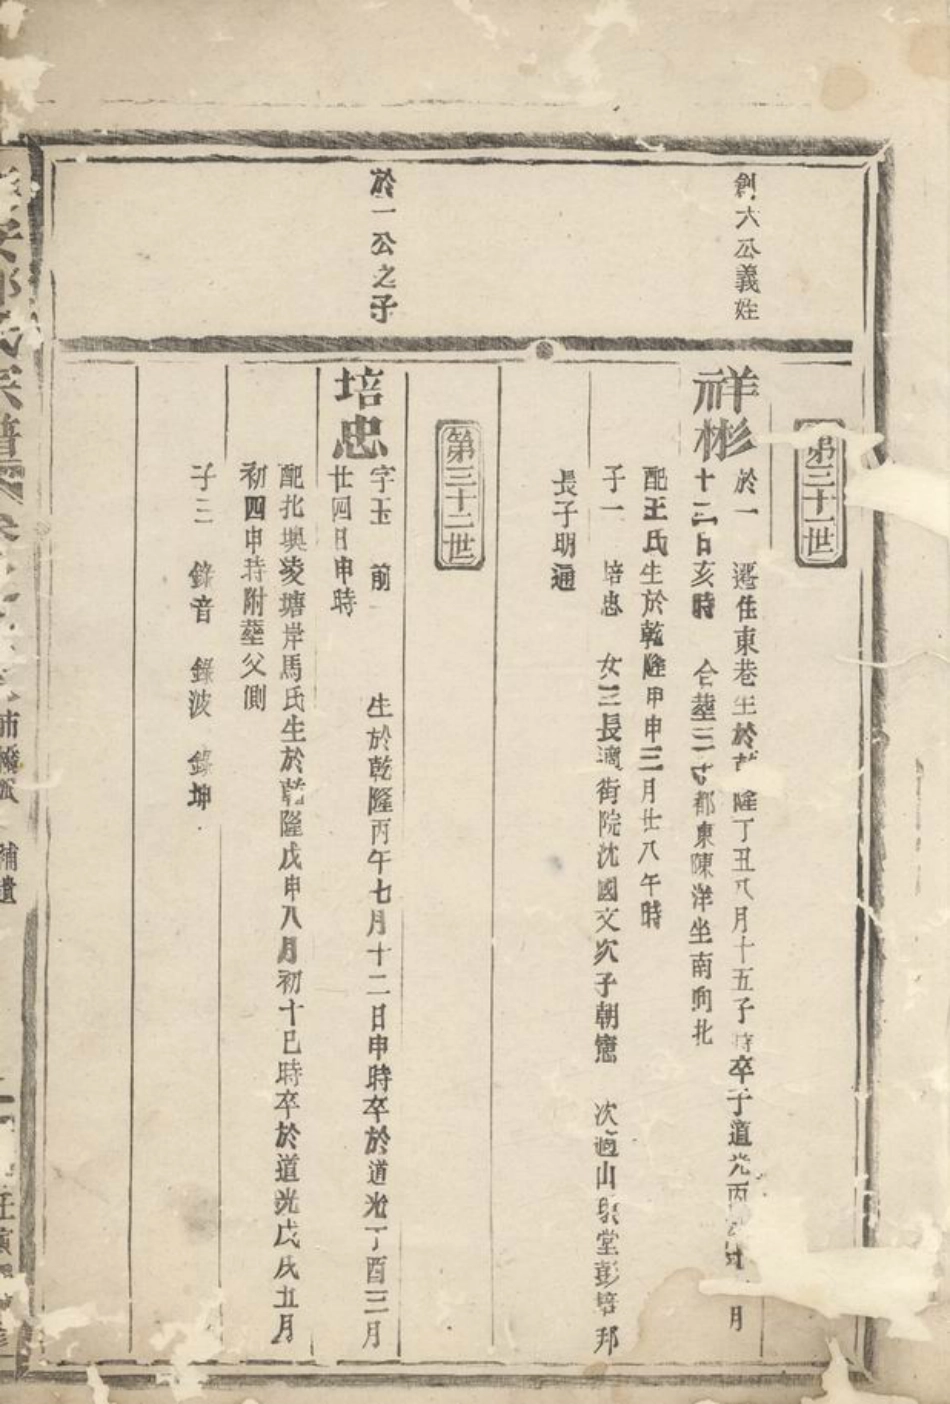 創六公義姓
第三十一世
祥彬
於一 遷住東巷生於 隆丁丑八月十五子 卒于道光丙 月
十二日亥時 合塟三 都東陳洋坐南向北
配王氏生於乾隆甲申三月廿八午時
子一 培忠 女三長適街院沈國文次子朝 次適山 堂彭培邦
長子明通
第三十二世
於一公之子
培忠
字玉前 生於乾隆丙午七月十二日申時卒於道光丁酉三月
廿四日申時
配北墺凌塘岸馬氏生於乾隆戊申八月初十巳時卒於道光戊戌五月
初四申時附塟父側
子三 錄音 錄波 錄坤
氏宗譜
補遺